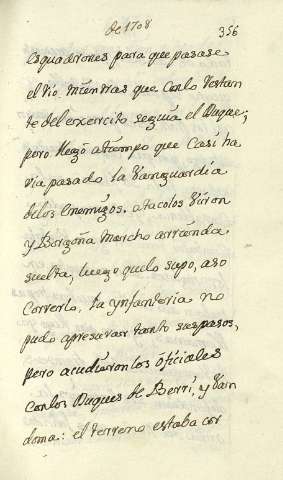 de 1708
356
esquadrones para que pasase
el rio mientras que con lo restan
te del exercito seguia el Duque;
pero llegò a tiempo que Casi ha
via pasado la Vanguardia
de los enemigos. atacolos Viron
y Borgoña marcho a rrienda
suelta, luego que lo supo, a so
correrlo. la ynfanteria no
pudo apresurar tanto sus pasos,
pero acudieron los oficiales
con los Duques de Berri, y Van
doma: el terreno estaba cor